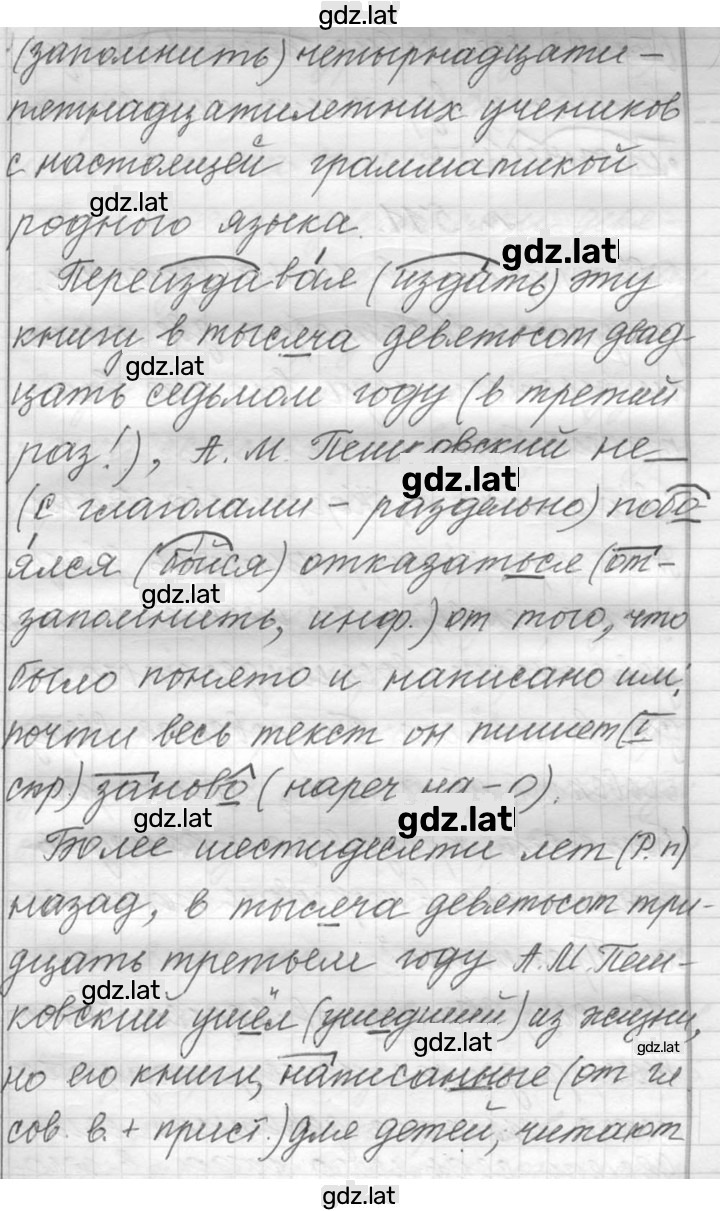 gdz.lat
(запомнить) четырнадцати –
петнадцатилетних учеников
с настоящей грамматикой
gdz.lat
родного языка.
gdz.lat
Переиздавая (издать) эту
книгу в тысяча девятьсот двад
gdz.lat
цать седьмом году (в третий
раз!), А. М. Пешковский не
gdz.lat
(с глаголами – раздельно) побо
ялся (бойся) отказаться (от-
gdz.lat
запомнить, инф.) от того, что
было понято и написано им,
почти весь текст он пишет (I
спр) заново (нареч на - о).
gdz.lat
gdz.lat
Более шестидесяти лет (Р. п)
назад, в тысяча девятьсот три-
дцать третьем году А. М. Пеш-
gdz.lat
ковский ушёл (ушедший) из жизни,
gdz.lat
gdz.lat
но его книги, написанные (от гл
сов. в. + прист.) для детей, читают
gdz.lat